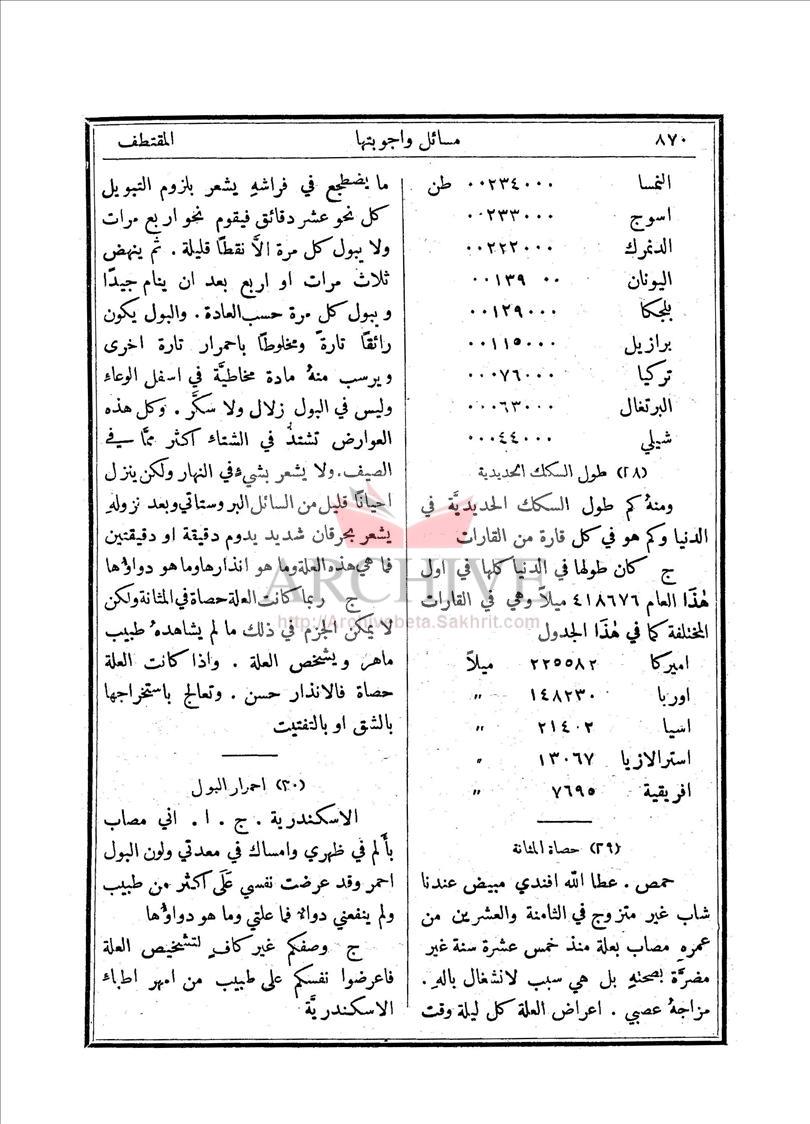 ٨٧٠ مسائل واجوبتها المقتطف
النمسا ٠٠٢٣٤٠٠٠ طن
اسوج ٠٠٢٣٣٠٠٠
الدنمرك ٠٠٢٢٢٠٠٠
اليونان ٠٠١٣٩ ٠٠
بلجكا ٠٠١٢٩٠٠٠
برازيل ٠٠١١٥٠٠٠
تركيا ٠٠٠٧٦٠٠٠
البرتغال ٠٠٠٦٣٠٠٠
شيلي ٠٠٠٤٤٠٠٠
(٢٨) طول السكك الحديدية
ومنهُ كم طول السكك الحديديَّة في
الدنيا وكم هو في كل قارة من القارات
ج كان طولها في الدنيا كلها في اول
هٰذَا العام ٤١٨٦٧٦ ميلاً وهي في القارات
المختلفة كما في هٰذَا الجدول
اميركا ٢٢٥٥٨٢ ميلاً
اوربا ١٤٨٢٣٠ "
اسيا ٢١٤٠٢ "
استرالازيا ١٣٠٦٧ "
افريقية ٧٦٩٥ "
(٢٩) حصاة المثانة
حمص . عطا الله افندي مبيض عندنا
شاب غير متزوج في الثامنة والعشرين من
عمرهِ مصاب بعلة منذ خمس عشرة سنة غير
مضرَّة بصحتهِ بل هي سبب لانشغال بالهِ .
مزاجهُ عصبي . اعراض العلة كل ليلة وقت
ما يضطجع في فراشهِ يشعر بلزوم التبويل
كل نحو عشر دقائق فيقوم نحو اربع مرات
ولا يبول كل مرة الاَّ نقطًا قليلة . ثم ينهض
ثلاث مرات او اربع بعد ان ينام جيدًا
ويبول كل مرة حسب العادة . والبول يكون
رائقًا تارةً ومخلوطًا باحمرار تارة اخرى
ويرسب منهُ مادة مخاطيَّة في اسفل الوعاء
وليس في البول زلال ولا سكَّر . وكل هذه
العوارض تشتدُّ في الشتاء اكثر ممَّا في
الصيف . ولا يشعر بشيءٍ في النهار ولكن ينزل
احيانًا قليل من السائل البروستاتي وبعد نزولهِ
يشعر بحرقان شديد يدوم دقيقة او دقيقتين
فما هي هذه العلة وما هو انذارها وما هو دواؤها
ج ربما كانت العلة حصاة في المثانة ولكن
لا يمكن الجزم في ذلك ما لم يشاهدهُ طبيب
ماهر ويشخص العلة . واذا كانت العلة
حصاة فالانذار حسن . وتعالج باستخراجها
بالشق او بالتفتيت
(٣٠) احمرار البول
الاسكندرية . ج . ا . اني مصاب
بأَلم في ظهري وامساك في معدتي ولون البول
احمر وقد عرضت نفسي عَلَى اكثر من طبيب
ولم ينفعني دواءٌ فما علتي وما هو دواؤها
ج وصفكم غير كافٍ لتشخيص العلة
فاعرضوا نفسكم على طبيب من امهر اطباء
الاسكندريَّة
ARCHIVE
http://Archivebeta.Sakhrit.com